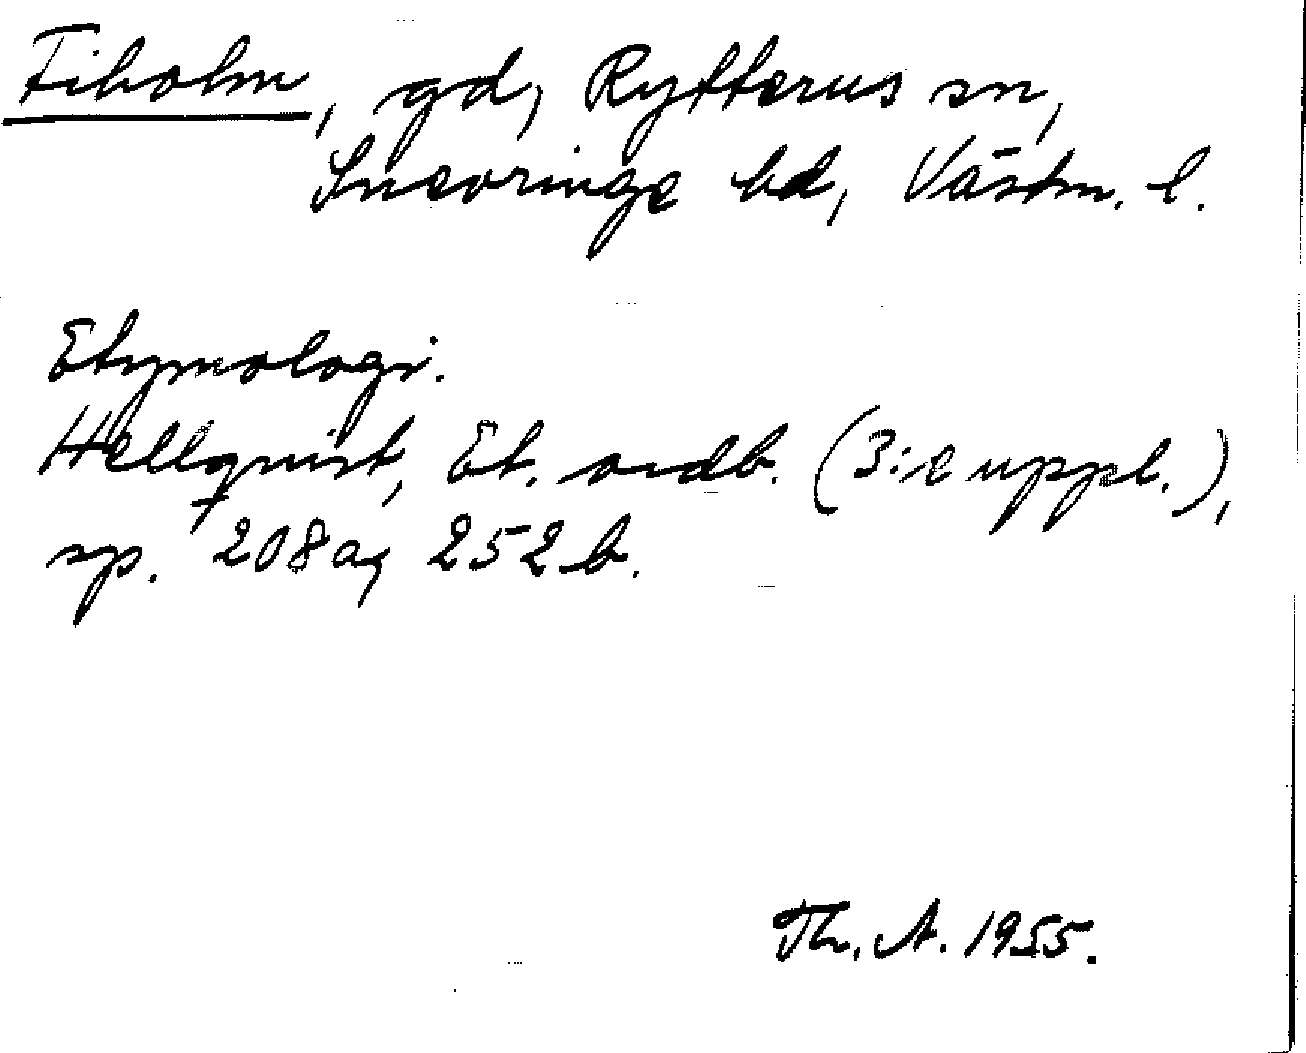 Fiholm, gd, Rytterus sn,
Snevringe hd, Västm. l.
Etymologi.
Hellquist, Et. ordb. (3:e uppl.),
sp. 208a, 252b.
Th. A. 1955.